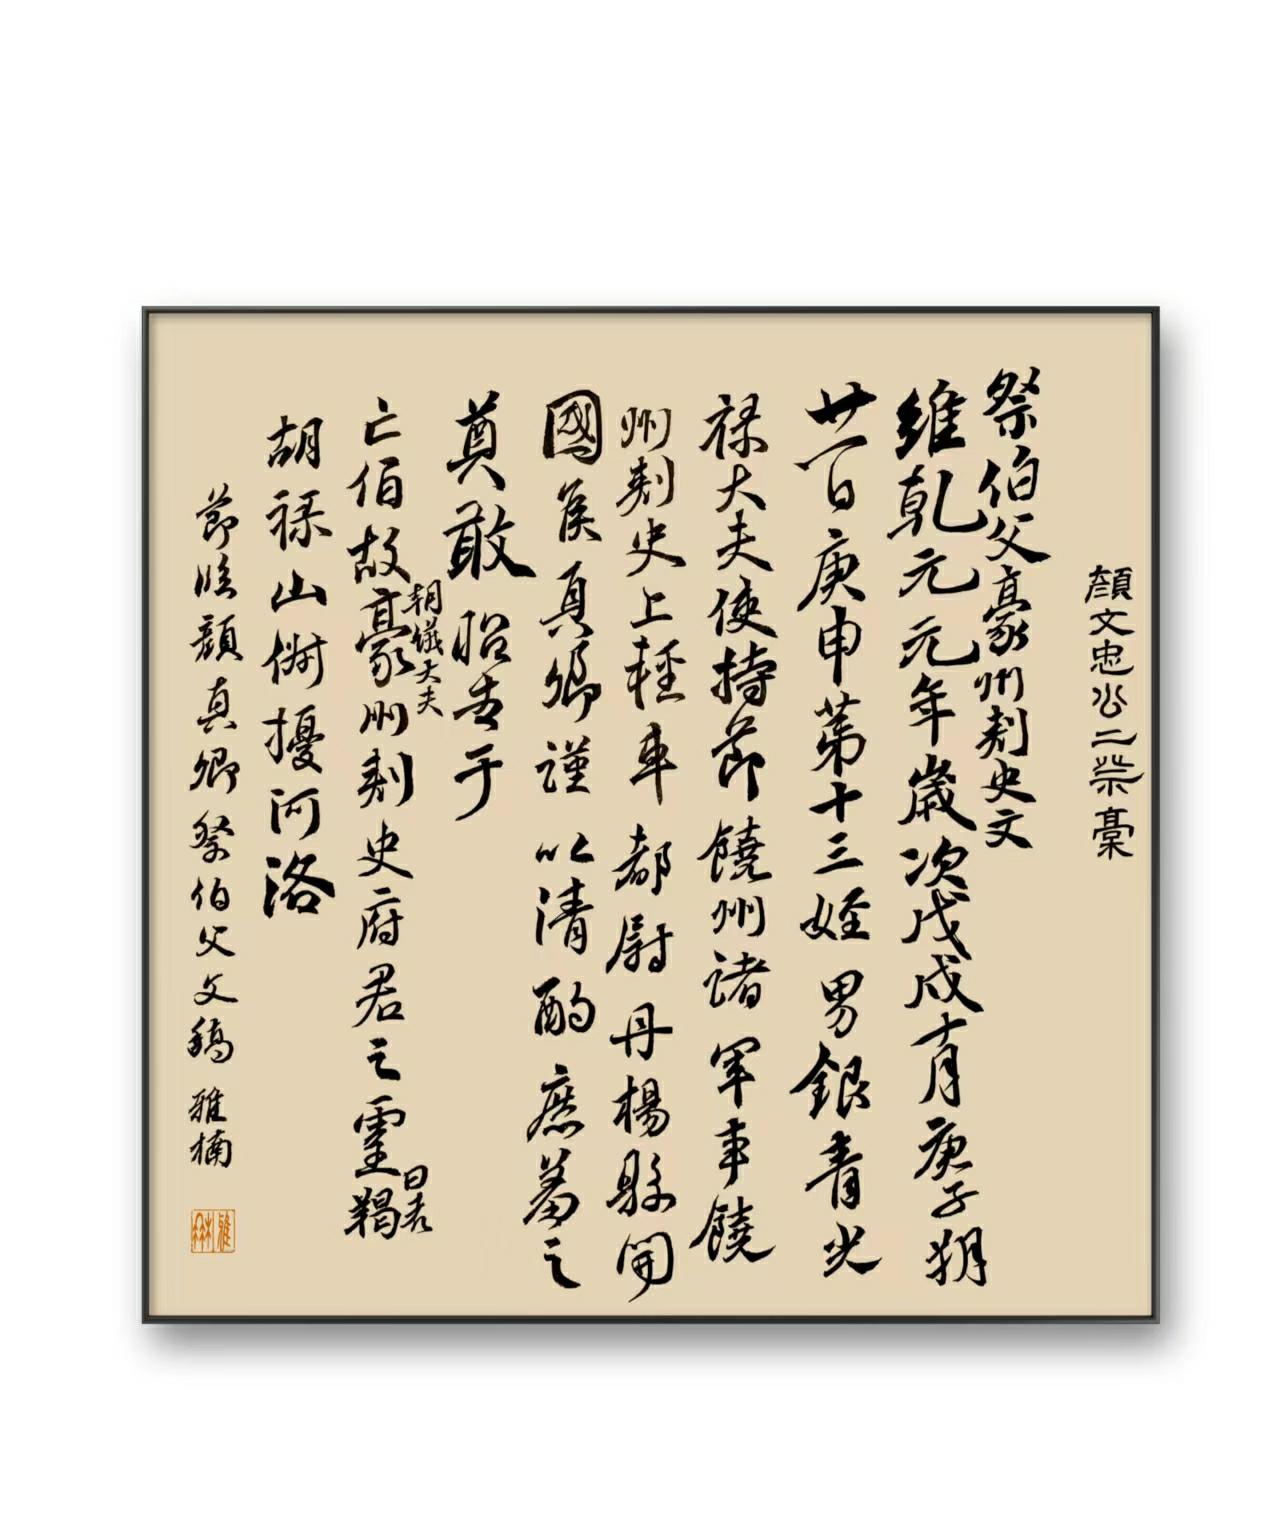 顏文忠公二祭稾
祭伯父豪州刾史文
維乾元元年歲次戊戌十月庚子朔
廿一日庚申第十三姪男銀青光
禄大夫使持節饒州諸軍事饒
州刾史上輕車都尉丹楊縣開
國侯真卿謹以清酌庶羞之
奠敢昭告于
亡伯故豪州刾史府君之靈曰
朝議大夫
者羯
胡禄山俶擾河洛
節临顏真卿祭伯父文稿 雅楠
雅楠